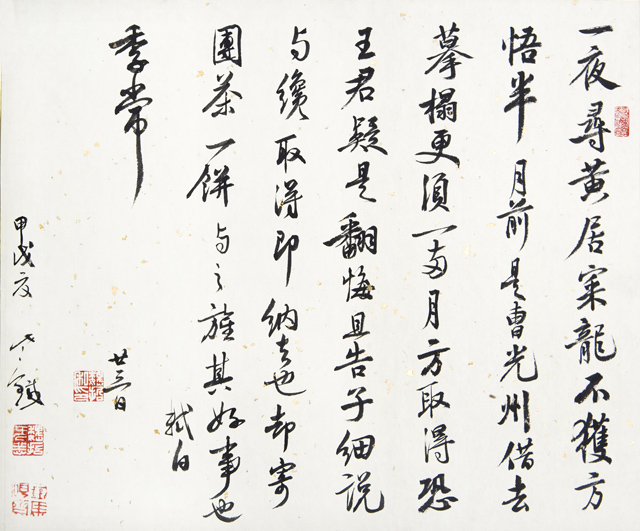 一夜尋黄居寀龍不獲方
悟半月前是曹光州借去
摹搨更須一兩月方取得恐
王君疑是翻悔且告子細説
与纔取得即納去也却寄
團茶一餅与之旌其好事也
軾白
季常
廿三日
甲戌夏